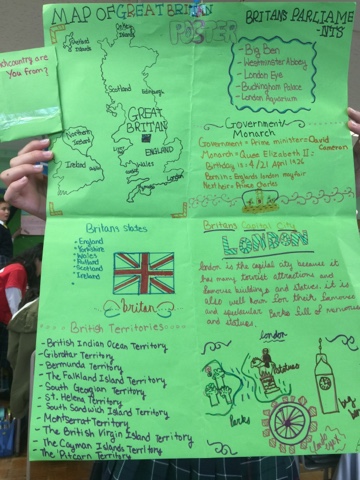 MAP OF GREAT BRITAN
POSTER
BRITANS PARLIAME
-NTS
country are
you from?
Orkney
Islands
Shetland
Islands
Scotland
Edinburgh
GREAT
BRITAN
Northern
Ireland
Ireland
ENGLAND
Wales
London
-Big Ben
-Westminster Abbey
-London Eye
-Buckingham Palace
-London Aquarium
Government/
Monarch
Government = Prime minister = David
Cameron
Monarch = Queen Elizabeth II =
Birthday is = 4/21 April 1926
Born is = Englands london mayfair
Next heir = Prince Charles
Britans States
• England
• Yorkshire
• Wales
• Rutland
• Scotland
• Ireland
•
britan
Britans Capital City
LONDON
london is the capital city because it
has many tourist attractions and
famous buildings and statues. it is
also well known for their famous
and spectacular Parks full of
and statues.
British Territories
- British Indian Ocean Territory
- Gibraltar Territory
- Bermunda Territory
- The Falkland Island Territory
- South Georgian Territory
- St. Helena Territory
- South Sandwich Island Territory
- Montserrat Territory
- The British Virgin Island Territory
- The Cayman Islands Territory
- The Pitcarn Territory
london
Statues
Parks
big
ben
london eye